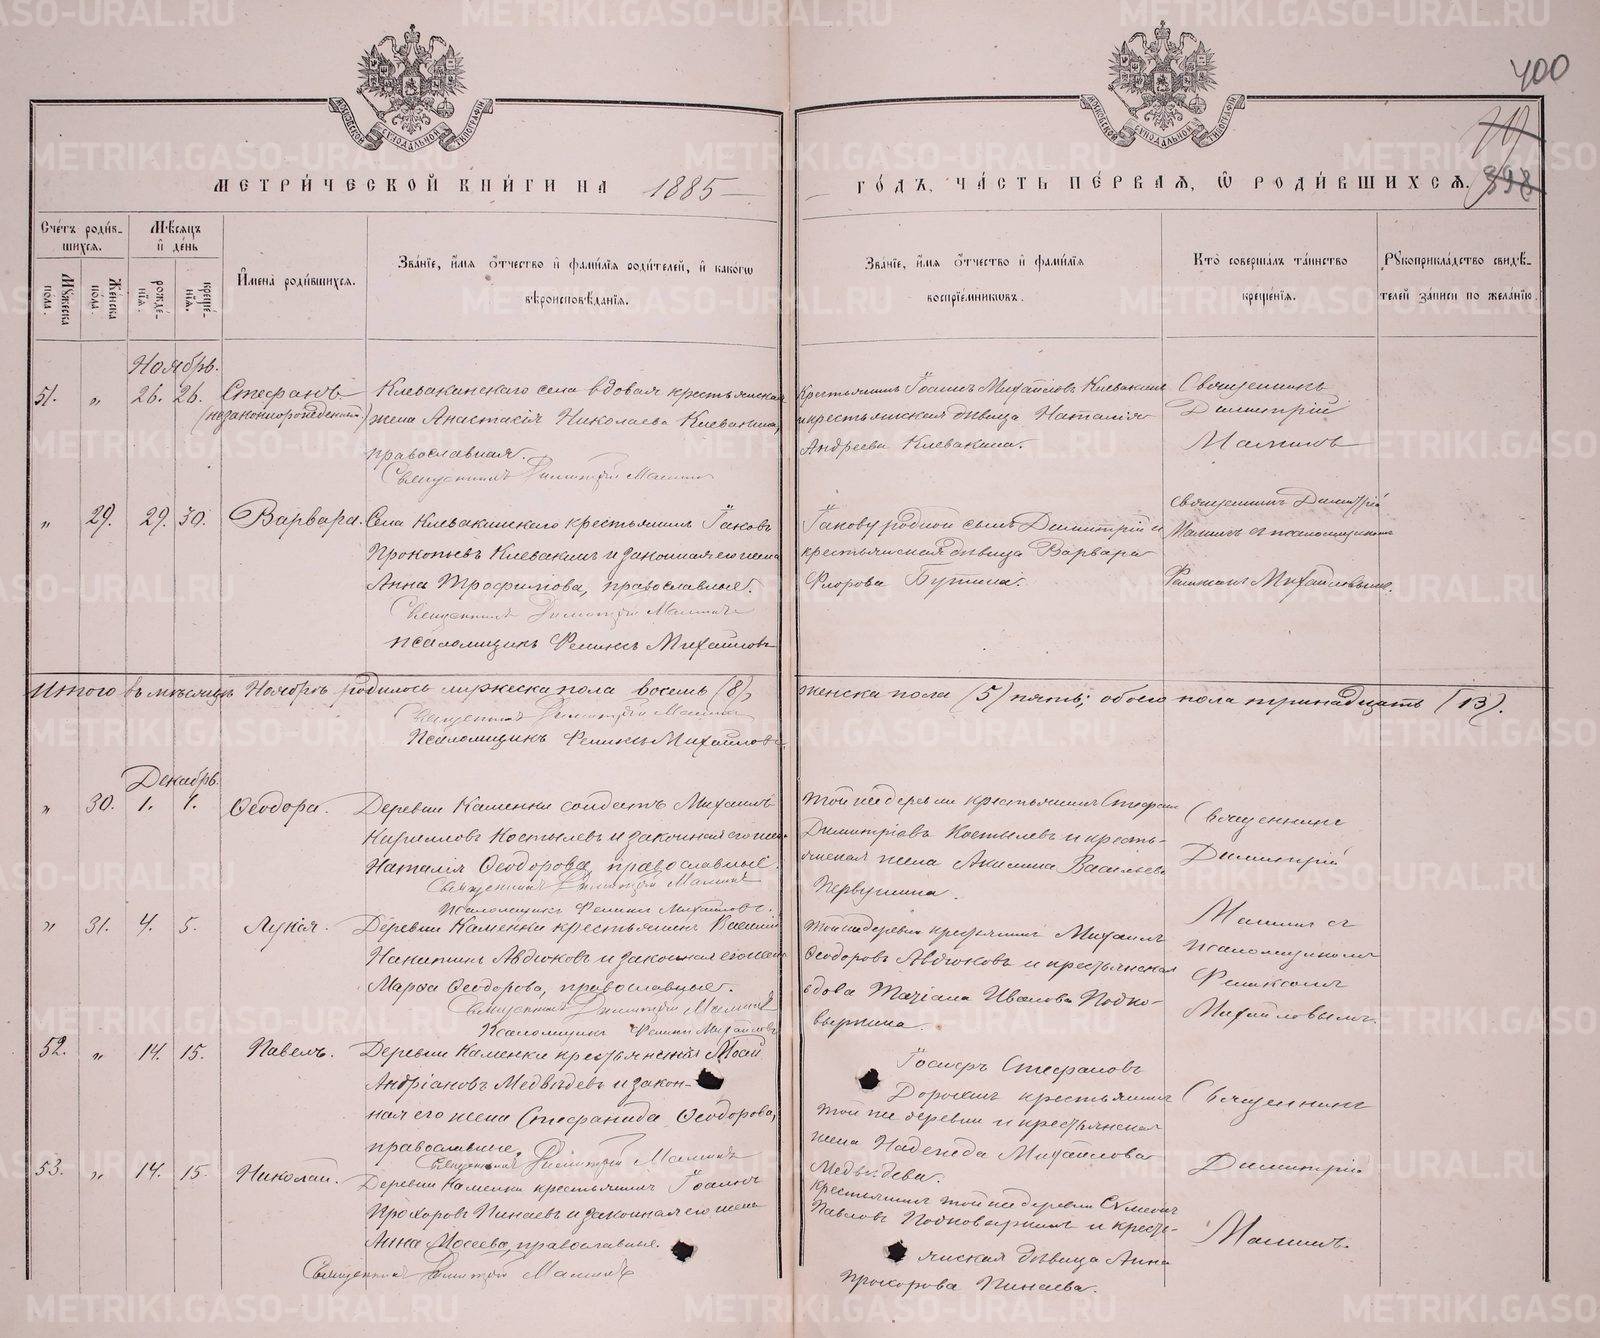 400
398
МЕТРИ́ЧЕСКОЙ КНИ́ГИ НА 1885 ГО́ДЪ, ЧА́СТЬ ПЕ́РВАЯ, Ѡ РОДИ́ВШИХСЯ.
Сче́тъ роди́вшихся.
Мꙋжеска пола.
Же́нска по́ла.
Мѣ́сяцъ и де́нь
рожде́нїя.
креще́нїя.
И҆мена̀ роди́вшихся.
Зва́нїе, и҆́мя ѻ҆́тчество и҆ фами́лїя роди́телей, и҆ како́гѡ вѣроисповѣ́данїя.
Зва́нїе, и҆́мя ѻ҆́тчество и҆ фами́лїя воспрїе́мниковъ.
Кто̀ соверша́лъ та́инство креще́нїя.
Рꙋкоприкла́дство свидѣ́телей за́писи по жела́нїю.
Ноябрь.
51. „ 26. 26. Стефанъ (незаконнорожденный)
Клевакинскаго села вдовая крестьянская
жена Анастасія Николаева Клевакина,
православная.
Священникъ Димитрій Маминъ
Крестьянинъ Іоаннъ Михайловъ Клевакинъ
и крестьянская дѣвица Наталія
Андреева Клевакина.
Священникъ
Димитрій
Маминъ
„ 29. 29. 30. Варвара.
Села Клевакинскаго крестьянинъ Іаковъ
Прокопьевъ Клевакинъ и законная его жена
Анна Трофимова, православные.
Священникъ Димитрій Маминъ
Псаломщикъ Феликсъ Михайловъ
Іакову родной сынъ Димитрій и
крестьянская дѣвица Варвара
Флорова Бутина.
Священникъ Димитрій
Маминъ съ псаломщикомъ
Феликсомъ Михайловымъ.
Итого въ мѣсяцѣ Ноябрѣ родилось мужеска пола восемь (8), женска пола (5) пять; обоего пола тринадцать (13).
Священникъ Димитрій Маминъ
Псаломщикъ Феликсъ Михайловъ
Декабрь.
„ 30. 1. 1. Ѳеодора.
Деревни Каменки солдатъ Михаилъ
Кирилловъ Костылевъ и законная его жена
Наталія Ѳеодорова, православные.
Священникъ Димитрій Маминъ
Псаломщикъ Феликсъ Михайловъ.
Той же деревни крестьянинъ Стефанъ
Димитріевъ Костылевъ и кресть-
янская жена Акилина Васильева
Первушина.
Священникъ
Димитрій
„ 31. 4. 5. Лукія.
Деревни Каменки крестьянинъ Василій
Никитинъ Авдюковъ и законная его жена
Марѳа Ѳеодорова, православные.
Священникъ Димитрій Маминъ
Псаломщикъ Феликсъ Михайловъ
Той же деревни крестьянинъ Михаилъ
Ѳеодоровъ Авдюковъ и крестьянская
вдова Татіана Иванова Подко-
выркина.
Маминъ съ
псаломщикомъ
Феликсомъ
Михайловымъ.
52. „ 14. 15. Павелъ.
Деревни Каменки крестьянинъ
Андріановъ Медвѣдевъ и закон-
ная его жена Стефанида Ѳеодорова,
православные.
Священникъ Димитрій Маминъ
Іосифъ Стефановъ
крестьянинъ
той же деревни и крестьянская
жена Надежда Михайлова
Медвѣдева.
Священникъ
Димитрій
53. „ 14. 15. Николай.
Деревни Каменки крестьянинъ Іоаннъ
Прохоровъ Пинаевъ и законная его жена
Анна Мосеева, православные.
Священникъ Димитрій Маминъ
Крестьянинъ той же деревни Сѵмеонъ
Павловъ Подковыркинъ и кресть-
янская дѣвица Анна
Прохорова Пинаева.
Маминъ.
METRIKI.GASO-URAL.RU